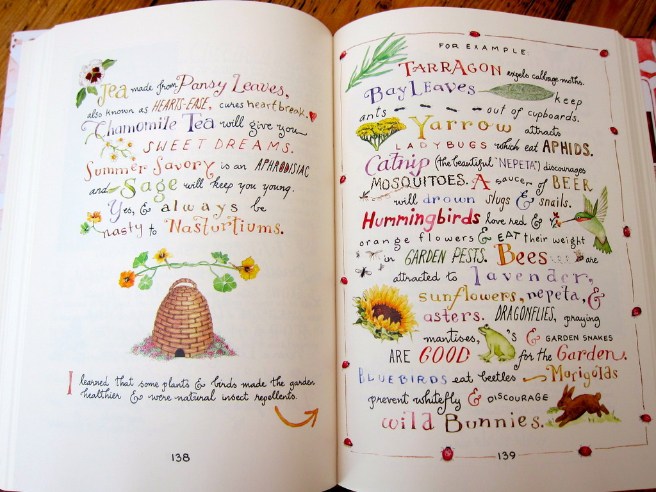 Tea made from Pansy Leaves,
also known as HEARTS-EASE, cures heartbreak.
Chamomile Tea will give you
SWEET DREAMS.
Summer Savory is an APHRODISIAC
and Sage will keep you young.
Yes, & always be
nasty to Nasturtiums.
I learned that some plants & birds made the garden
healthier & were natural insect repellents.
138
FOR EXAMPLE
TARRAGON expels cabbage moths.
BAY LEAVES keep
ants out of cupboards.
Yarrow attracts
LADYBUGS which eat APHIDS.
Catnip (the beautiful "NEPETA") discourages
MOSQUITOES. A saucer of BEER
will drown slugs & snails.
Hummingbirds love red &
orange flowers & EAT their weight
in GARDEN PESTS. Bees are
attracted to lavender,
sunflowers, nepeta, &
asters. DRAGONFLIES, praying
mantises, 's & GARDEN SNAKES
ARE GOOD for the Garden.
BLUEBIRDS eat beetles ~ Marigolds
prevent whitefly & DISCOURAGE
wild Bunnies.
139